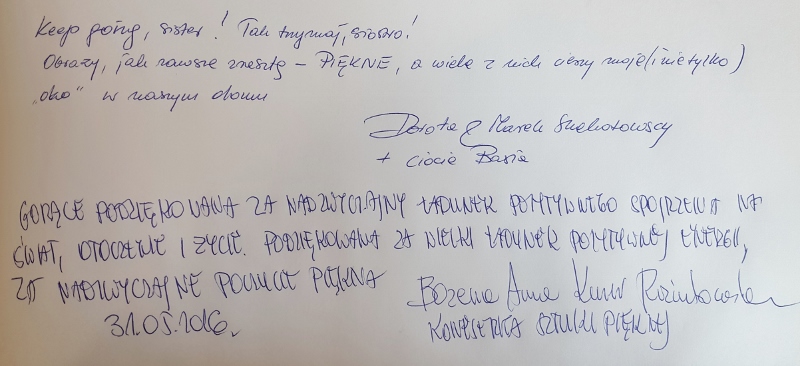 Keep going, sister! Tak trzymaj, siostro!
Obrazy, jak zawsze zresztą – PIĘKNE, a wiele z nich cieszy moje (i nie tylko)
„oko” w naszym domu
Dorota & Marek
+ ciocia Basia
GORĄCE PODZIĘKOWANIA ZA NADZWYCZAJNY ŁADUNEK POZYTYWNEGO SPOJRZENIA NA
ŚWIAT, OTOCZENIE I ŻYCIE. PODZIĘKOWANIA ZA WIELKI ŁADUNEK POZYTYWNEJ ENERGII,
ZA NADZWYCZAJNE POCZUCIE PIĘKNA
Bożena Anna
31.05.2016. KONESERKA SZTUKI PIĘKNEJ